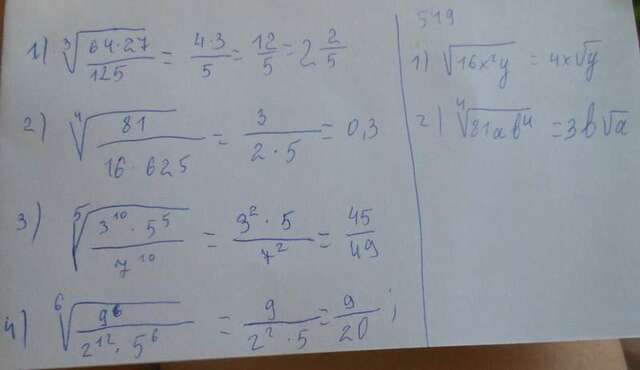 1) ∛(64·27/125) = 4·3/5 = 12/5 = 2 2/5
2) ∜(81/(16·625)) = 3/(2·5) = 0,3
3) ⁵√(3¹⁰·5⁵/7¹⁰) = 3²·5/7² = 45/49
4) ⁶√(9⁶/(2¹²·5⁶)) = 9/(2²·5) = 9/20 ;
519
1) √(16x²y) = 4x√y
2) ∜(81ab⁴) = 3b√a